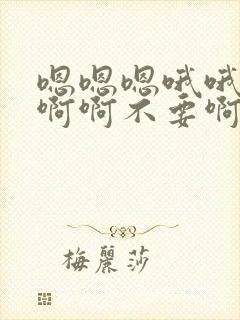 嗯嗯嗯哦哦
啊啊不要啊
梅麗莎